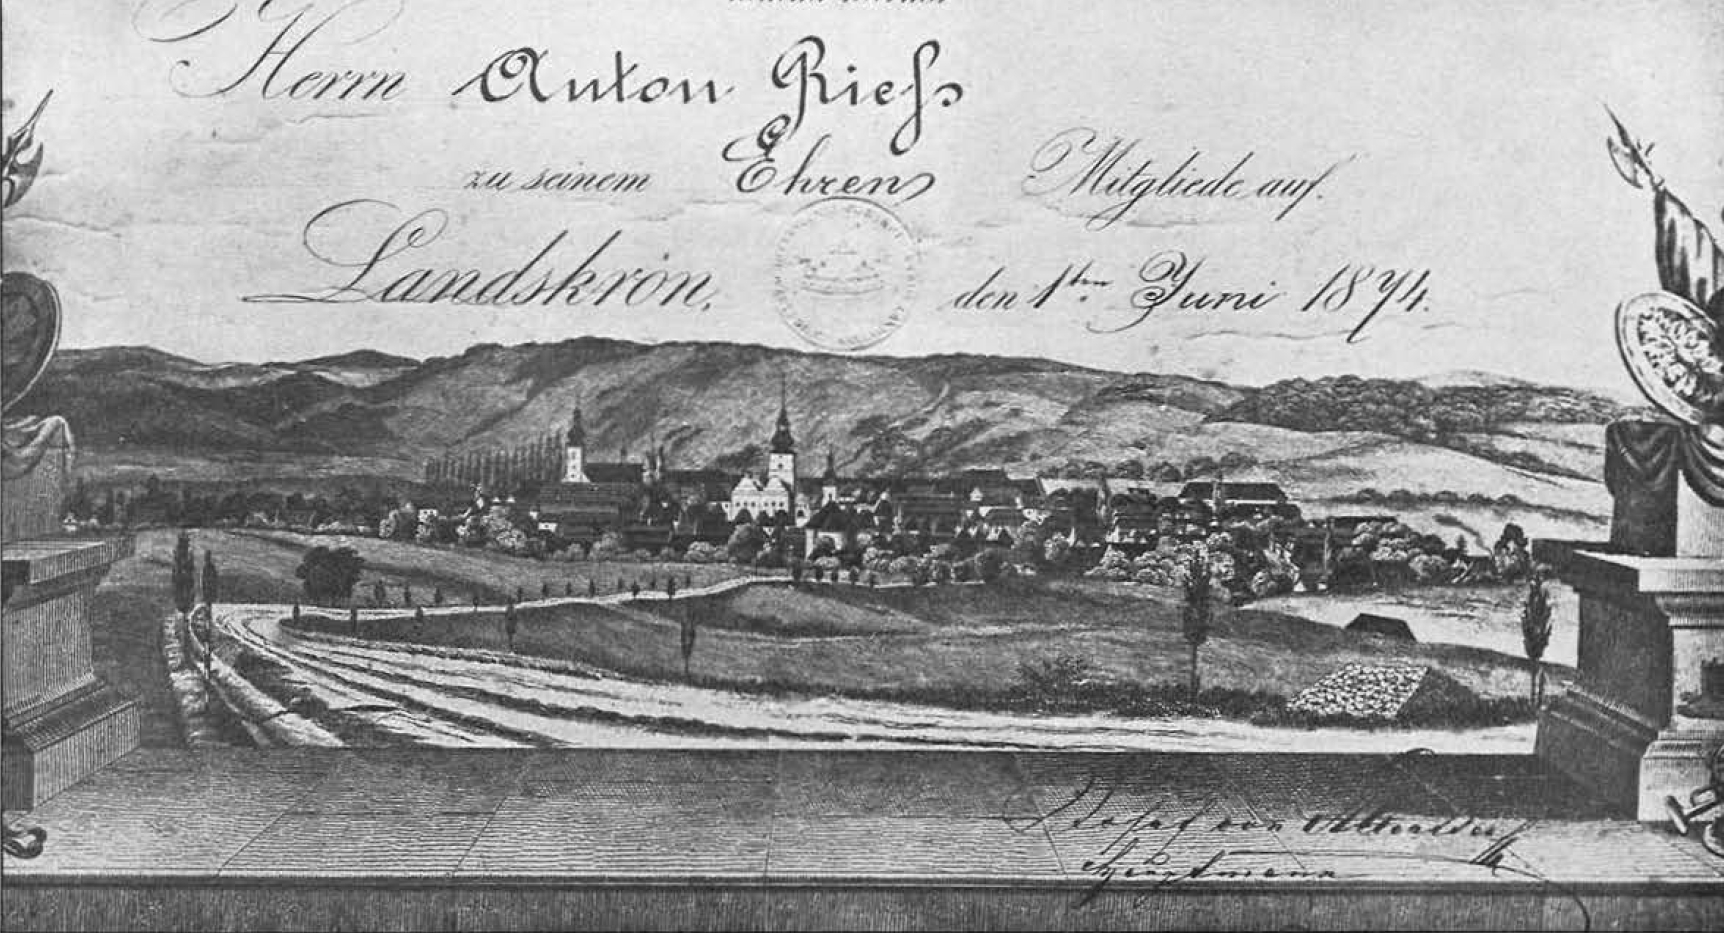 Herrn Anton Rieß
zu seinem Ehren Mitgliede auf.
Landskron, den 1ten Juni 1874.
Josef von
Hauptmann